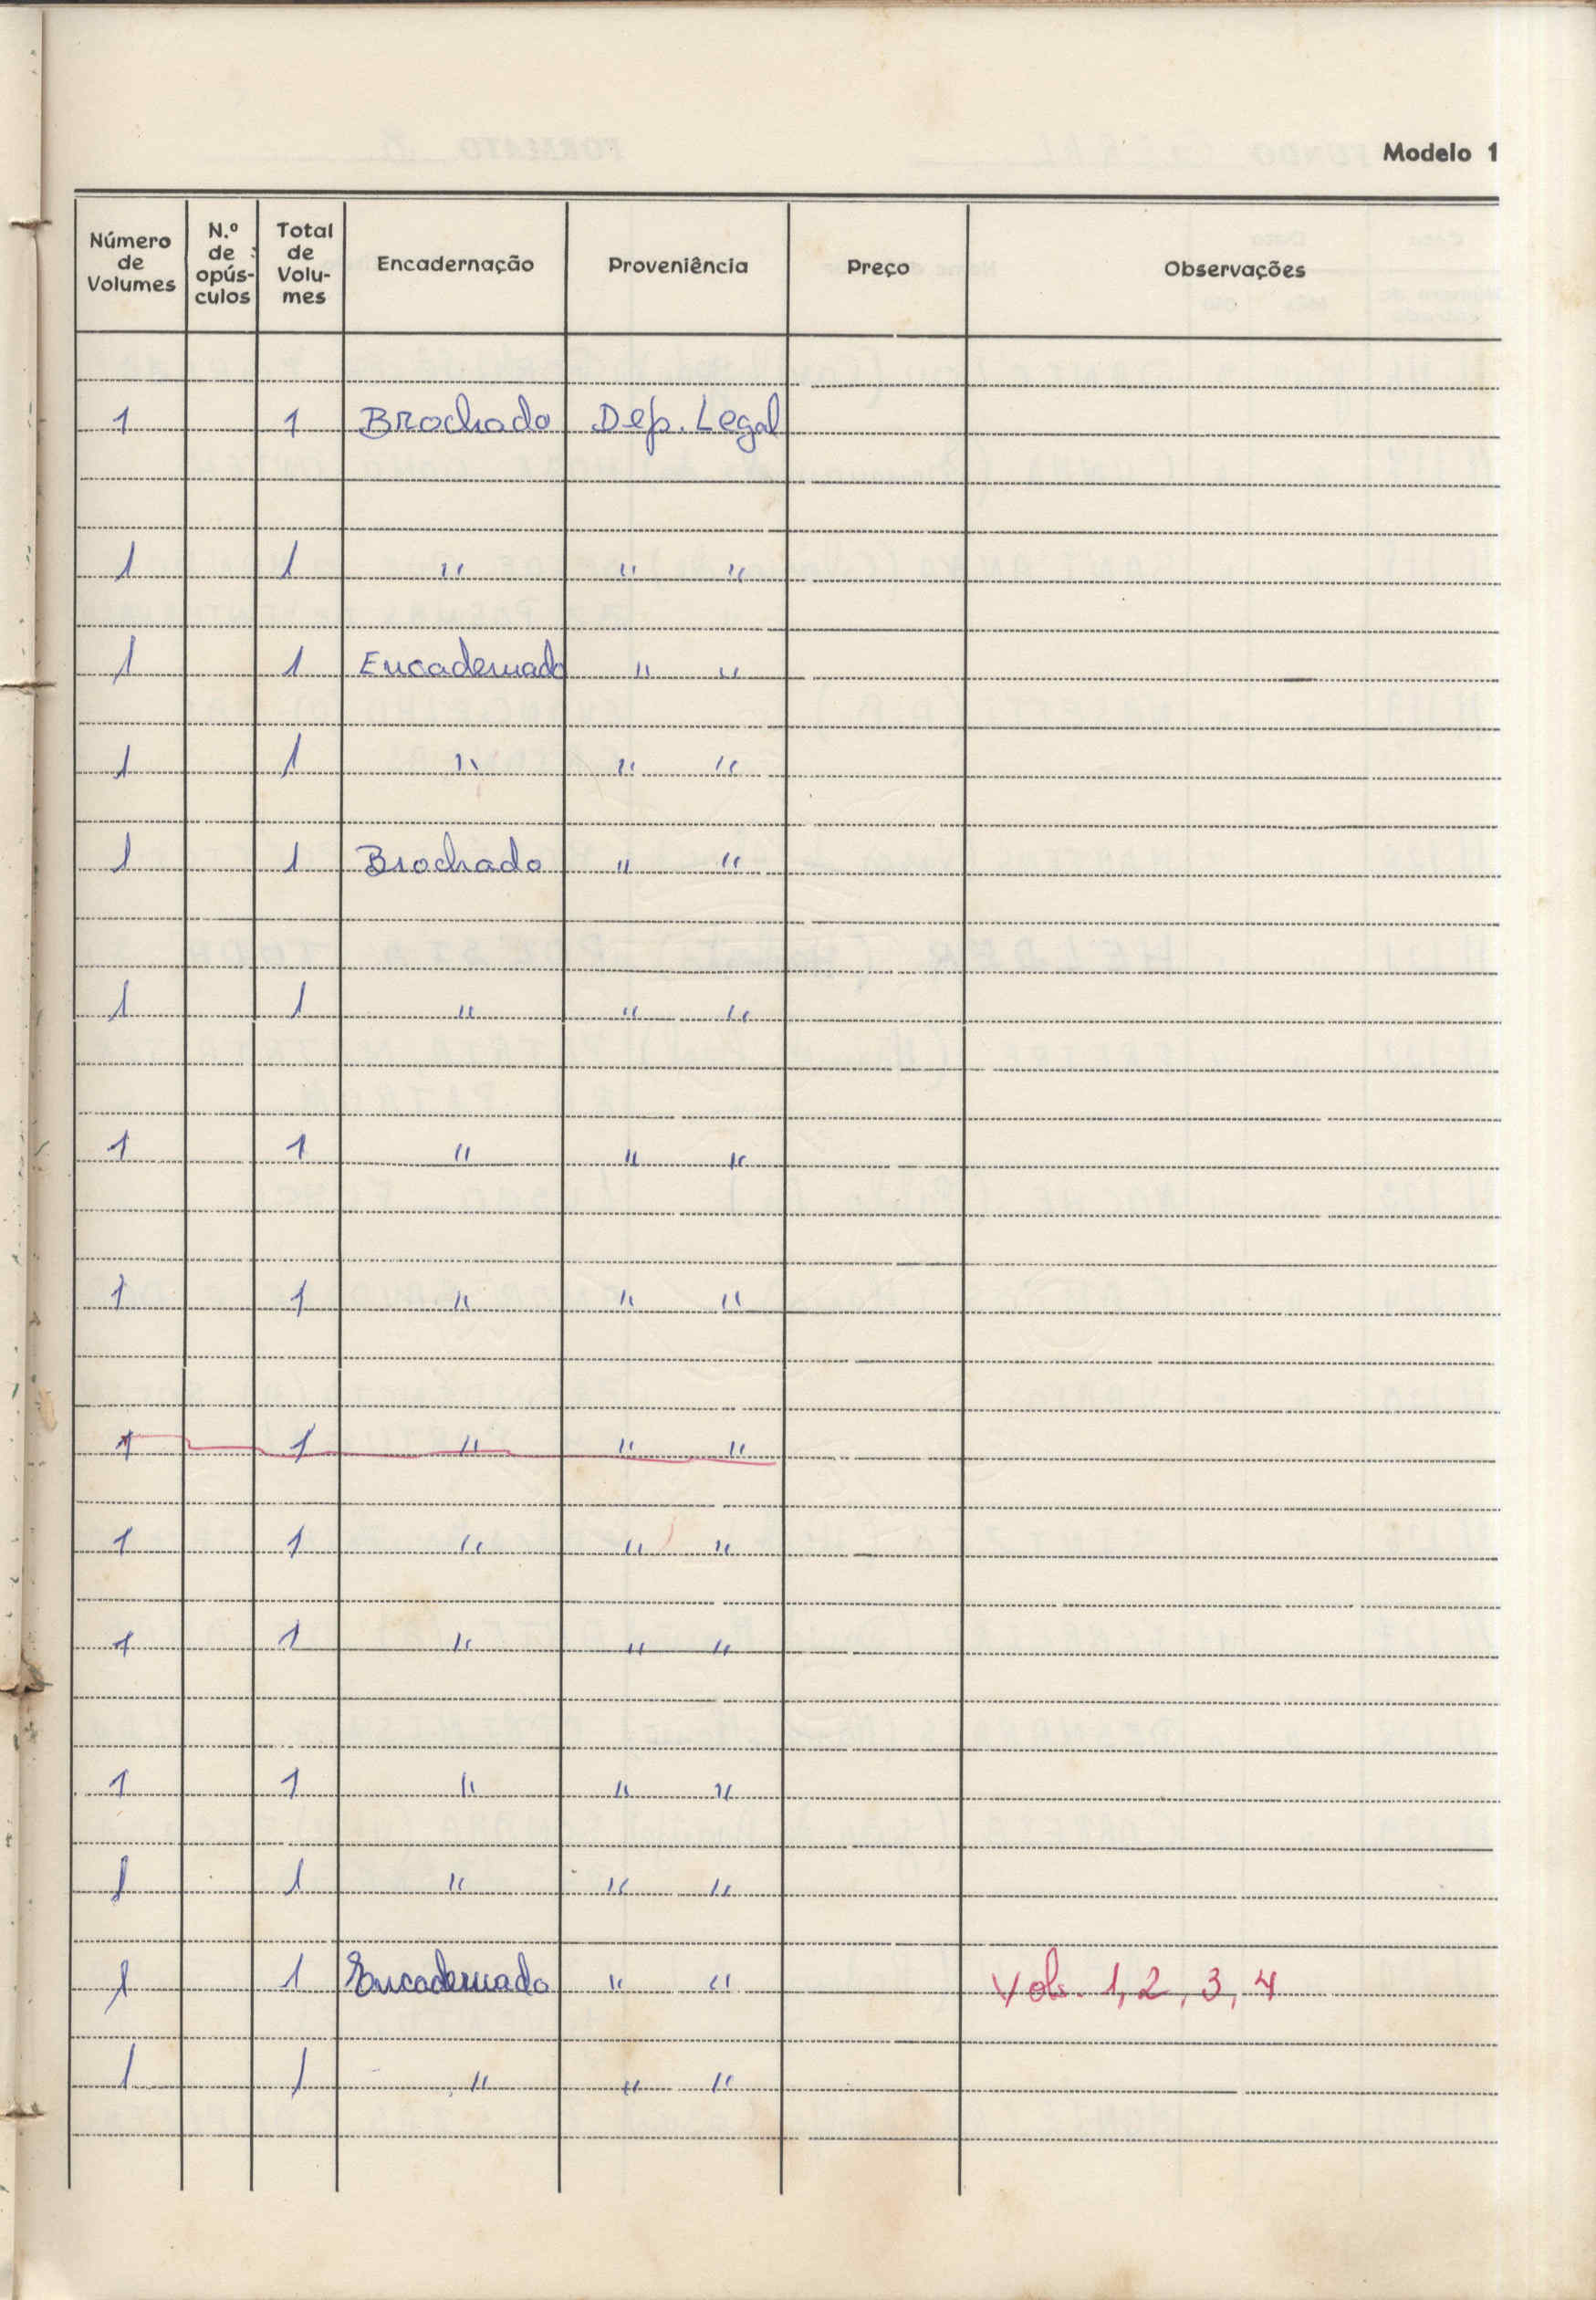 Modelo 1
Número de Volumes N.º de opús-culos Total de Volu-mes Encadernação Proveniência Preço Observações
1 1 Brochado Dep. Legal
1 1 " " "
1 1 Encadernado " "
1 1 " " "
1 1 Brochado " "
1 1 " " "
1 1 " " "
1 1 " " "
1 1 " " "
1 1 " " "
1 1 " " "
1 1 " " "
1 1 " " "
1 1 Encadernado " " Vols. 1, 2, 3, 4
1 1 " " "